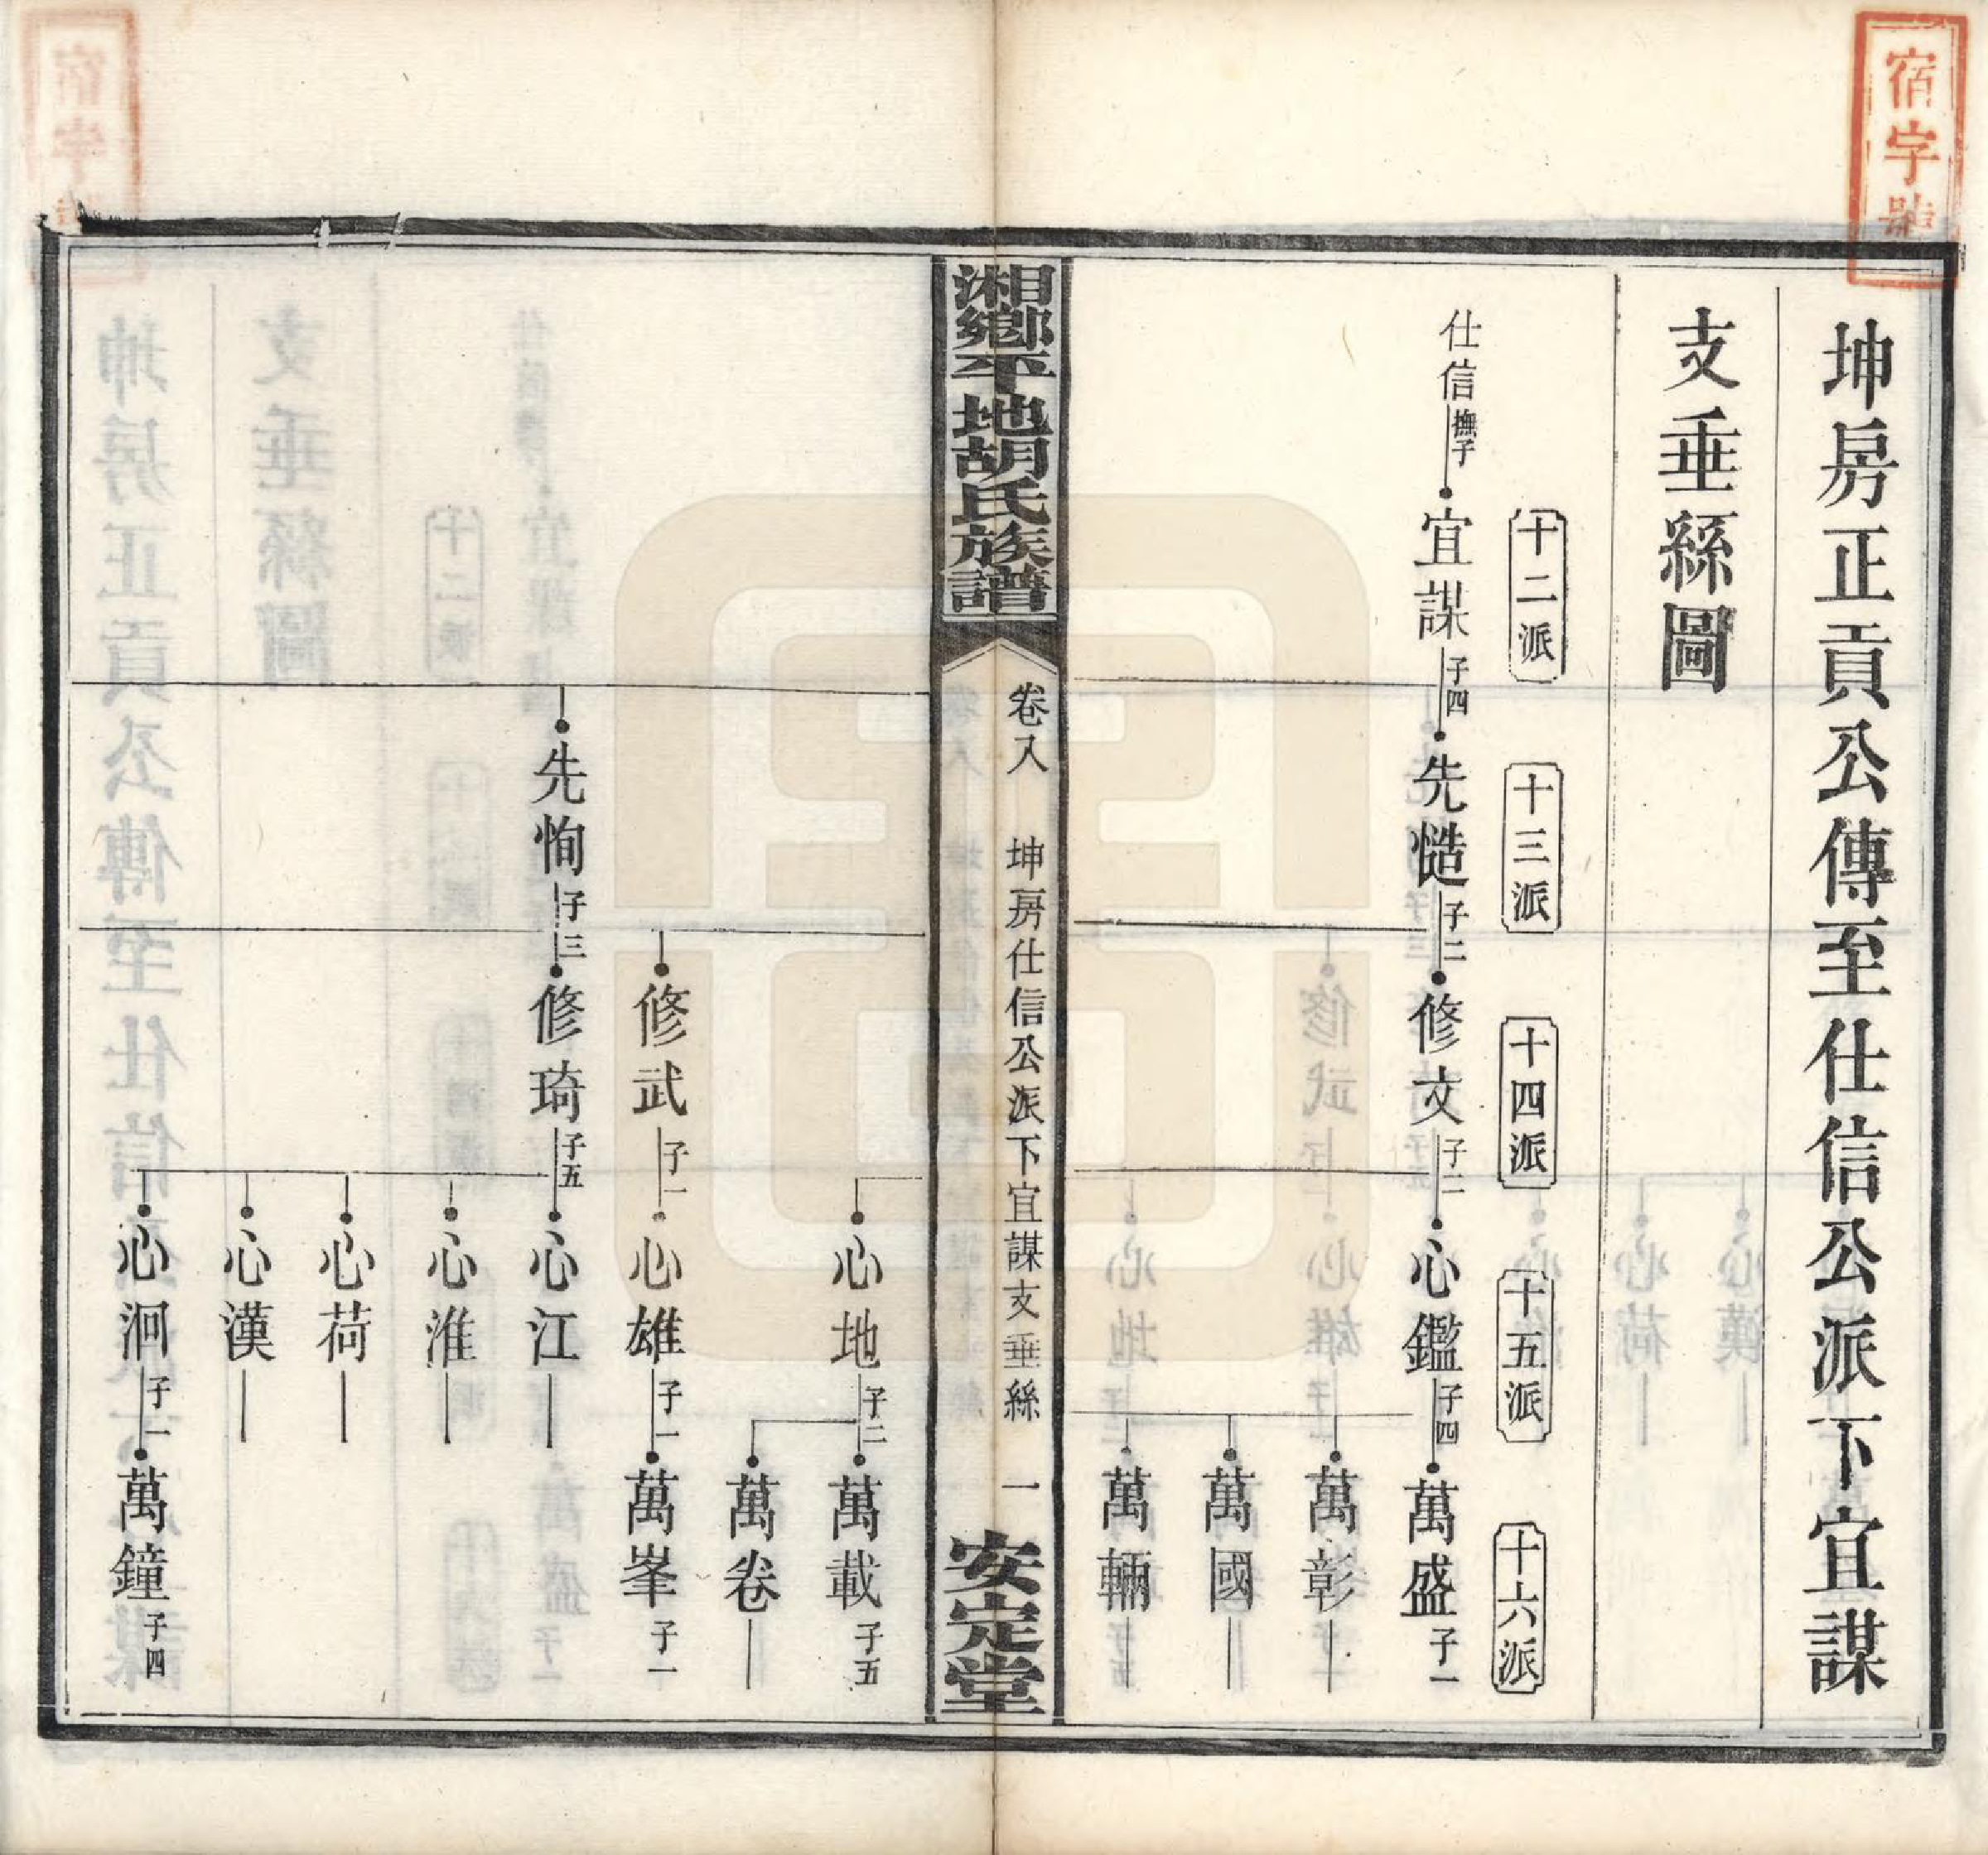 宿字號
坤房正貢公傳至仕信公派下宜謀
支垂絲圖
十二派
十三派
十四派
十五派
十六派
仕信撫子
宜謀子四
先慥子二
修文子二
心鑑子四
萬盛子一
萬彰
萬國
萬輛
湘鄉平地胡氏族譜
卷八
坤房仕信公派下宜謀支垂絲
一
安定堂
心地子二
萬載子五
萬卷
修武子一
心雄子一
萬峯子一
先恂子三
修琦子五
心江
心淮
心荷
心漢
心泂子一
萬鐘子四